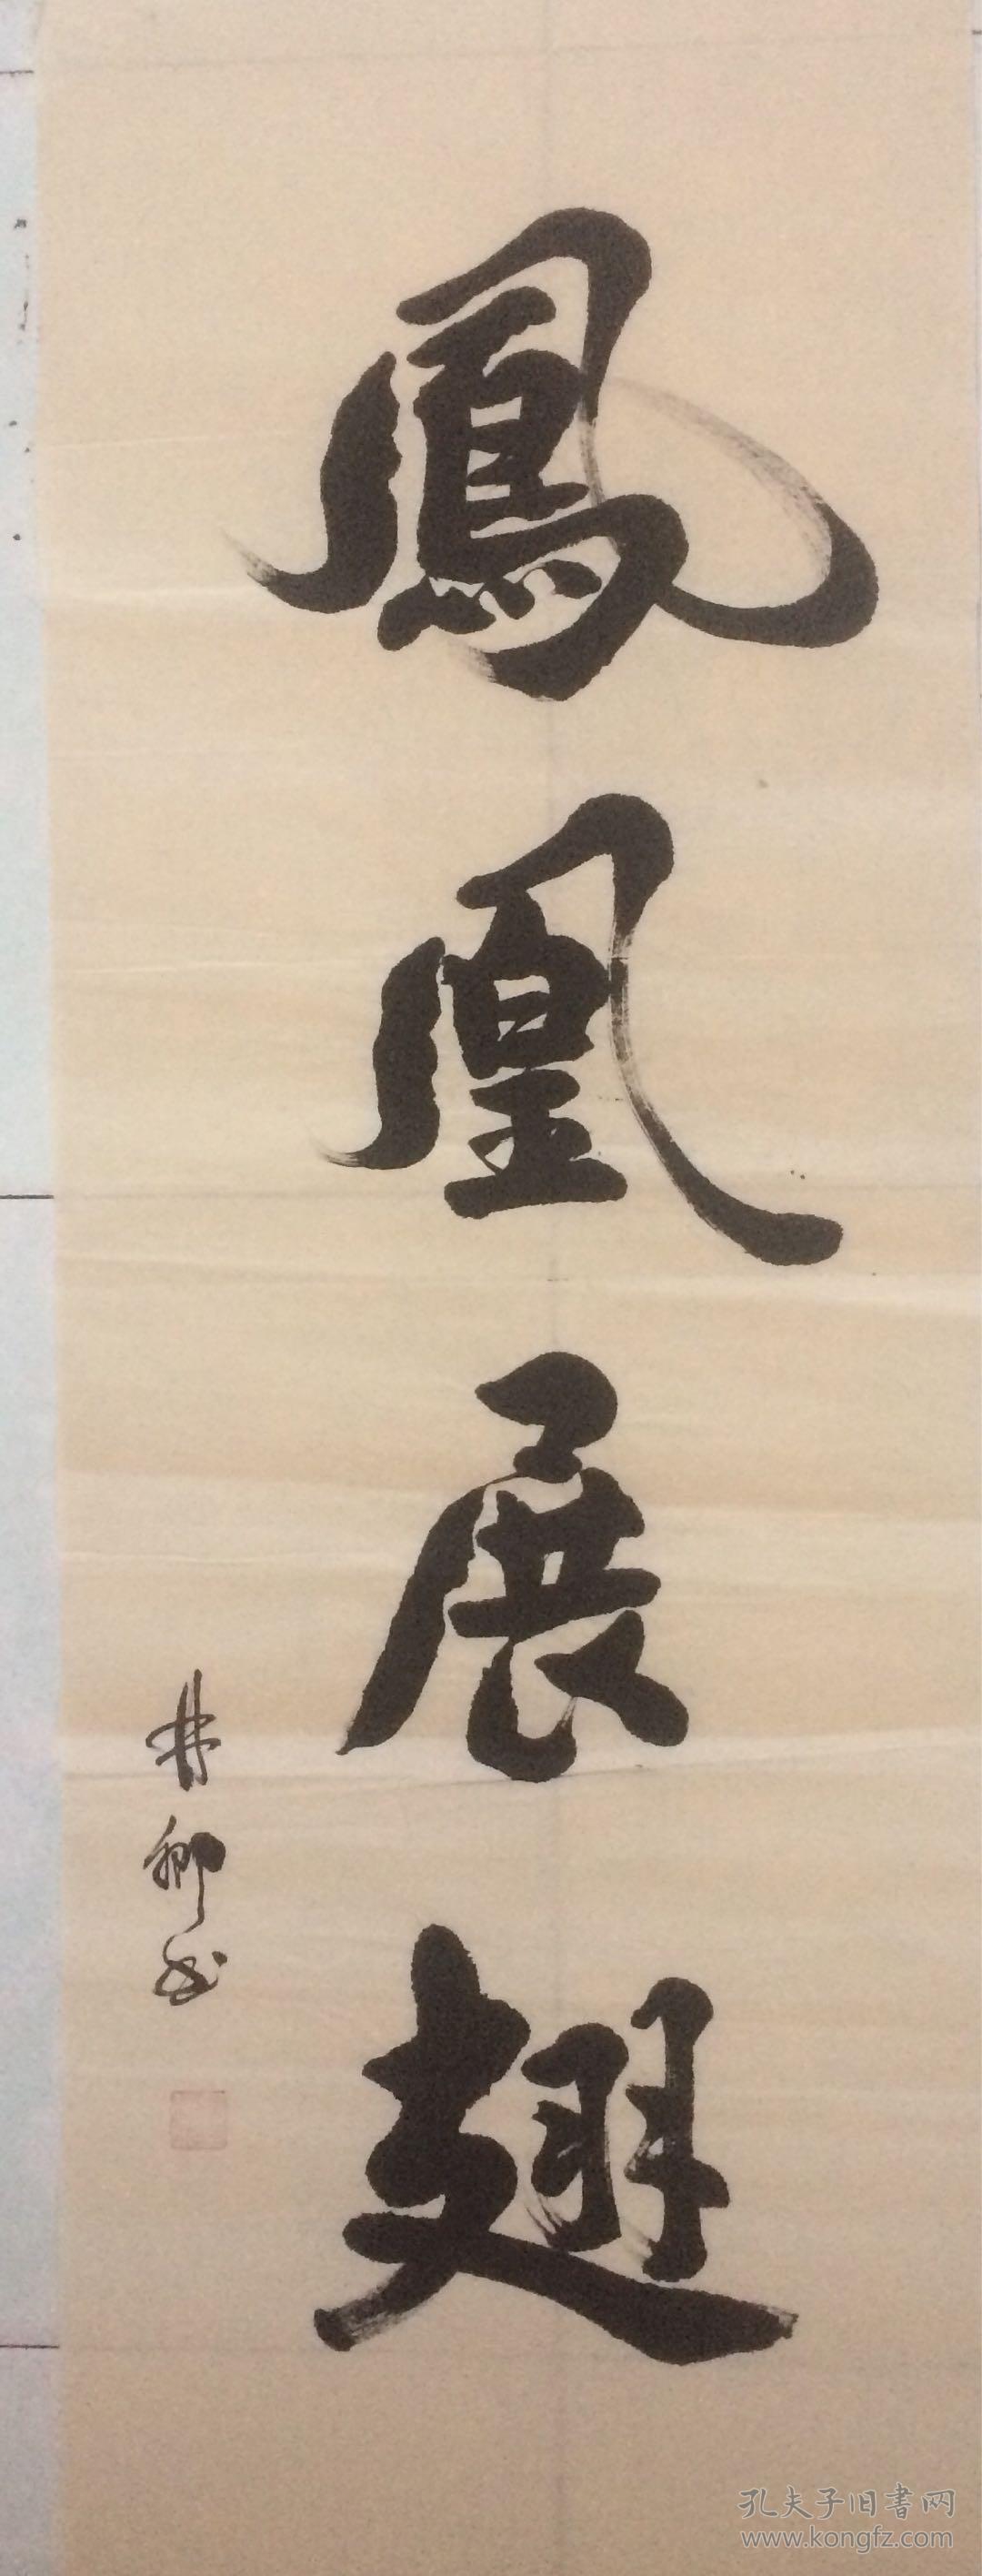 鳳凰展翅
卿书
孔夫子旧書网
www.kongfz.com